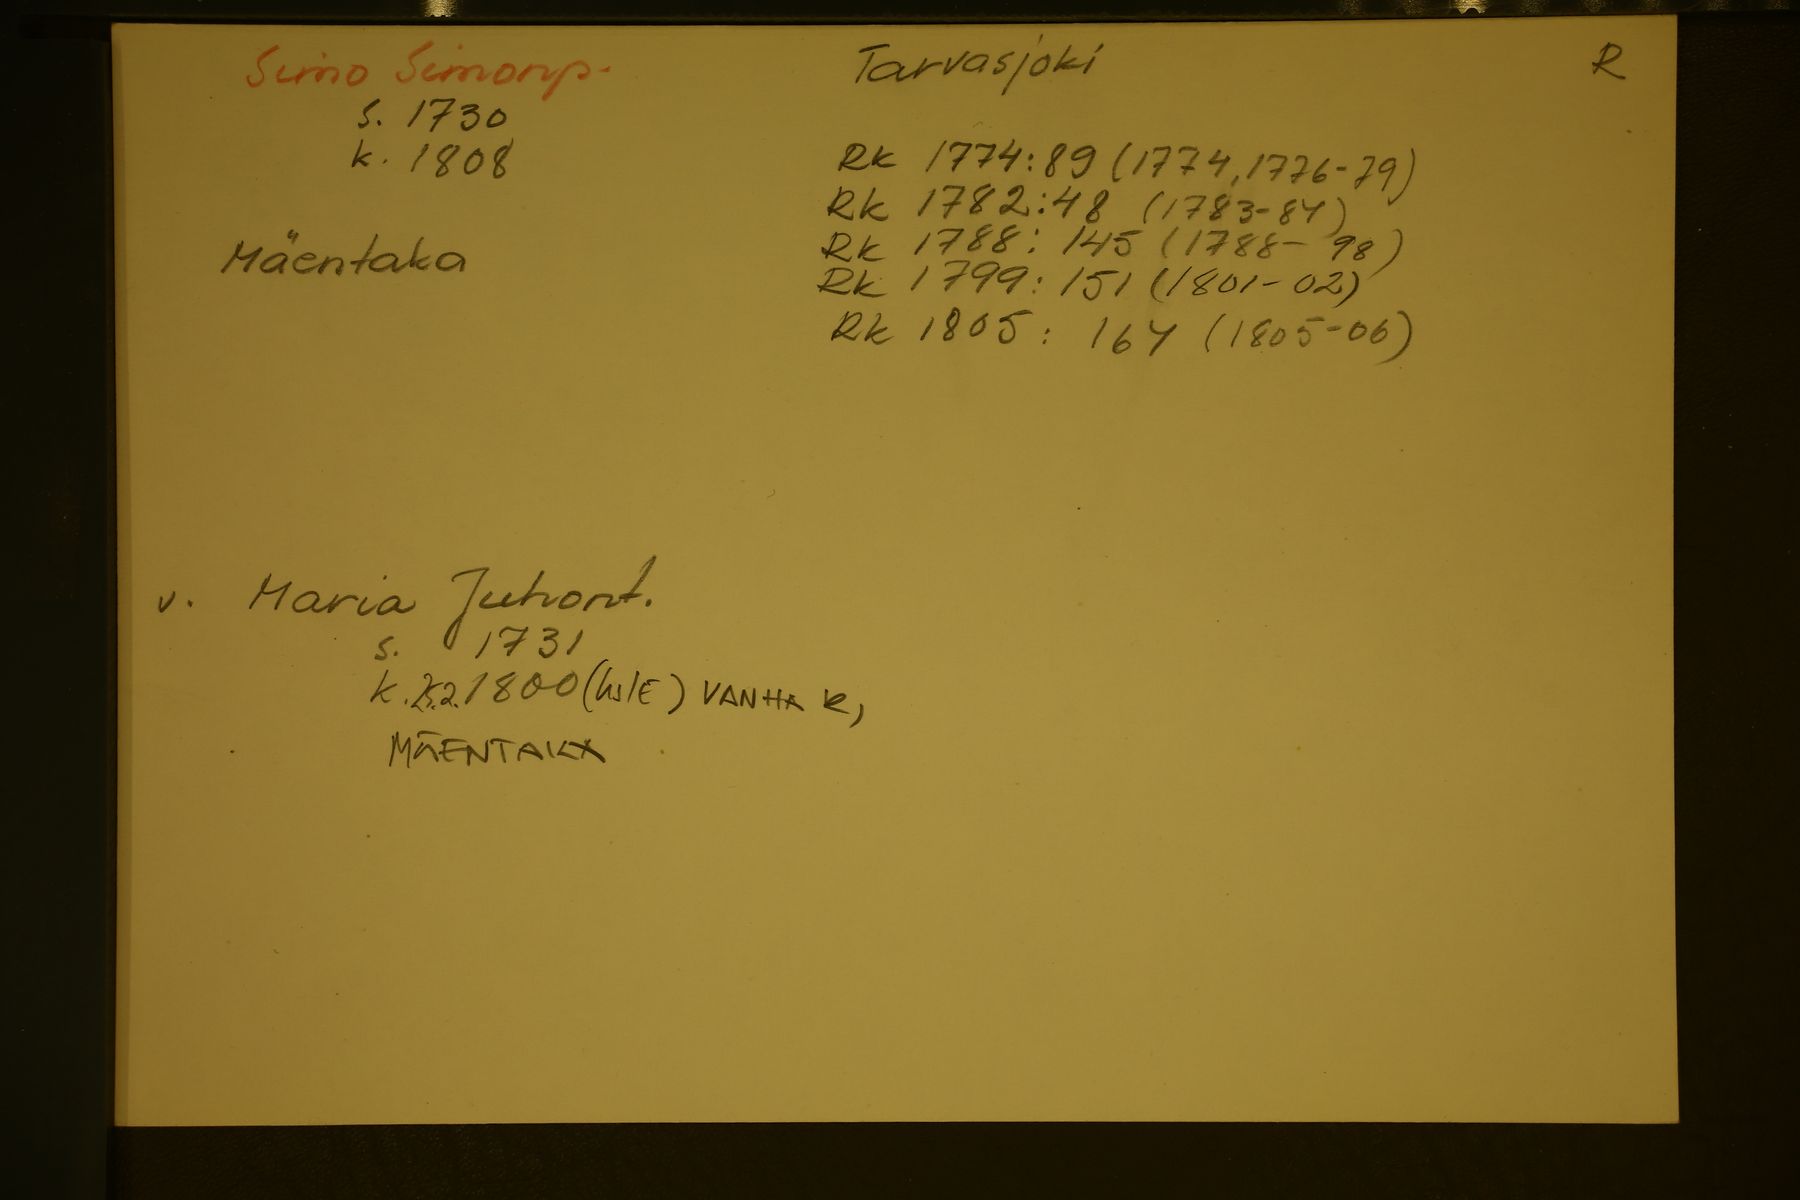 Simo Simonp.
s. 1730
k. 1808
Mäentaka
Tarvasjoki
R
Rk 1774:89 (1774, 1776-79)
Rk 1782:48 (1783-84)
Rk 1788: 145 (1788- 98)
Rk 1799: 151 (1801-02)
Rk 1805: 164 (1805-06)
v. Maria Juhont.
s. 1731
k. 1800 VANHA R,
MÄENTAKA